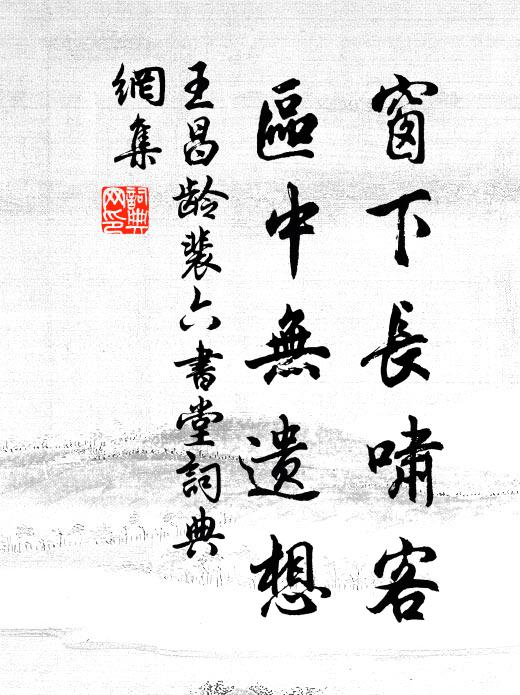 窗下長嘯客
區中無遺想
王昌龄裴六書堂詞典
網集
詞典
网印